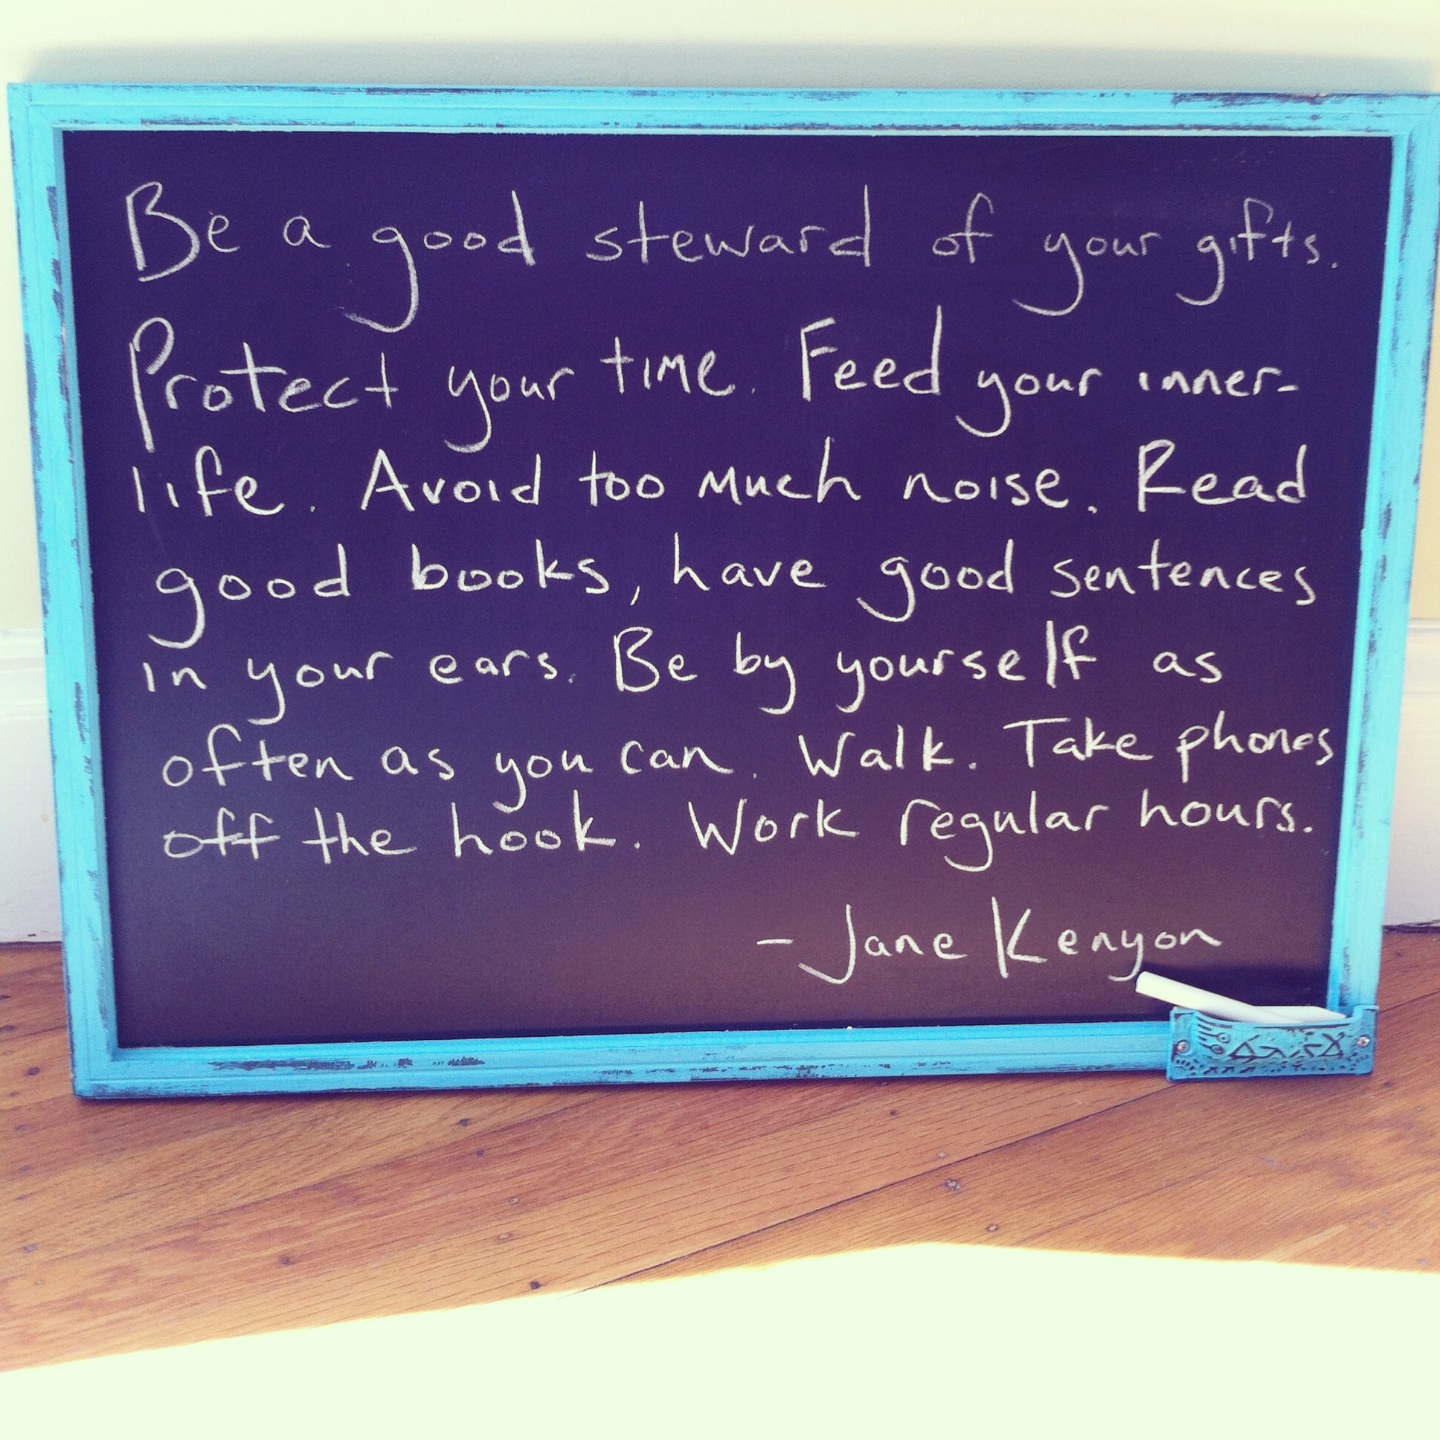 Be a good steward of your gifts.
Protect your time. Feed your inner-
life. Avoid too much noise. Read
good books, have good sentences
in your ears. Be by yourself as
often as you can. Walk. Take phones
off the hook. Work regular hours.
- Jane Kenyon